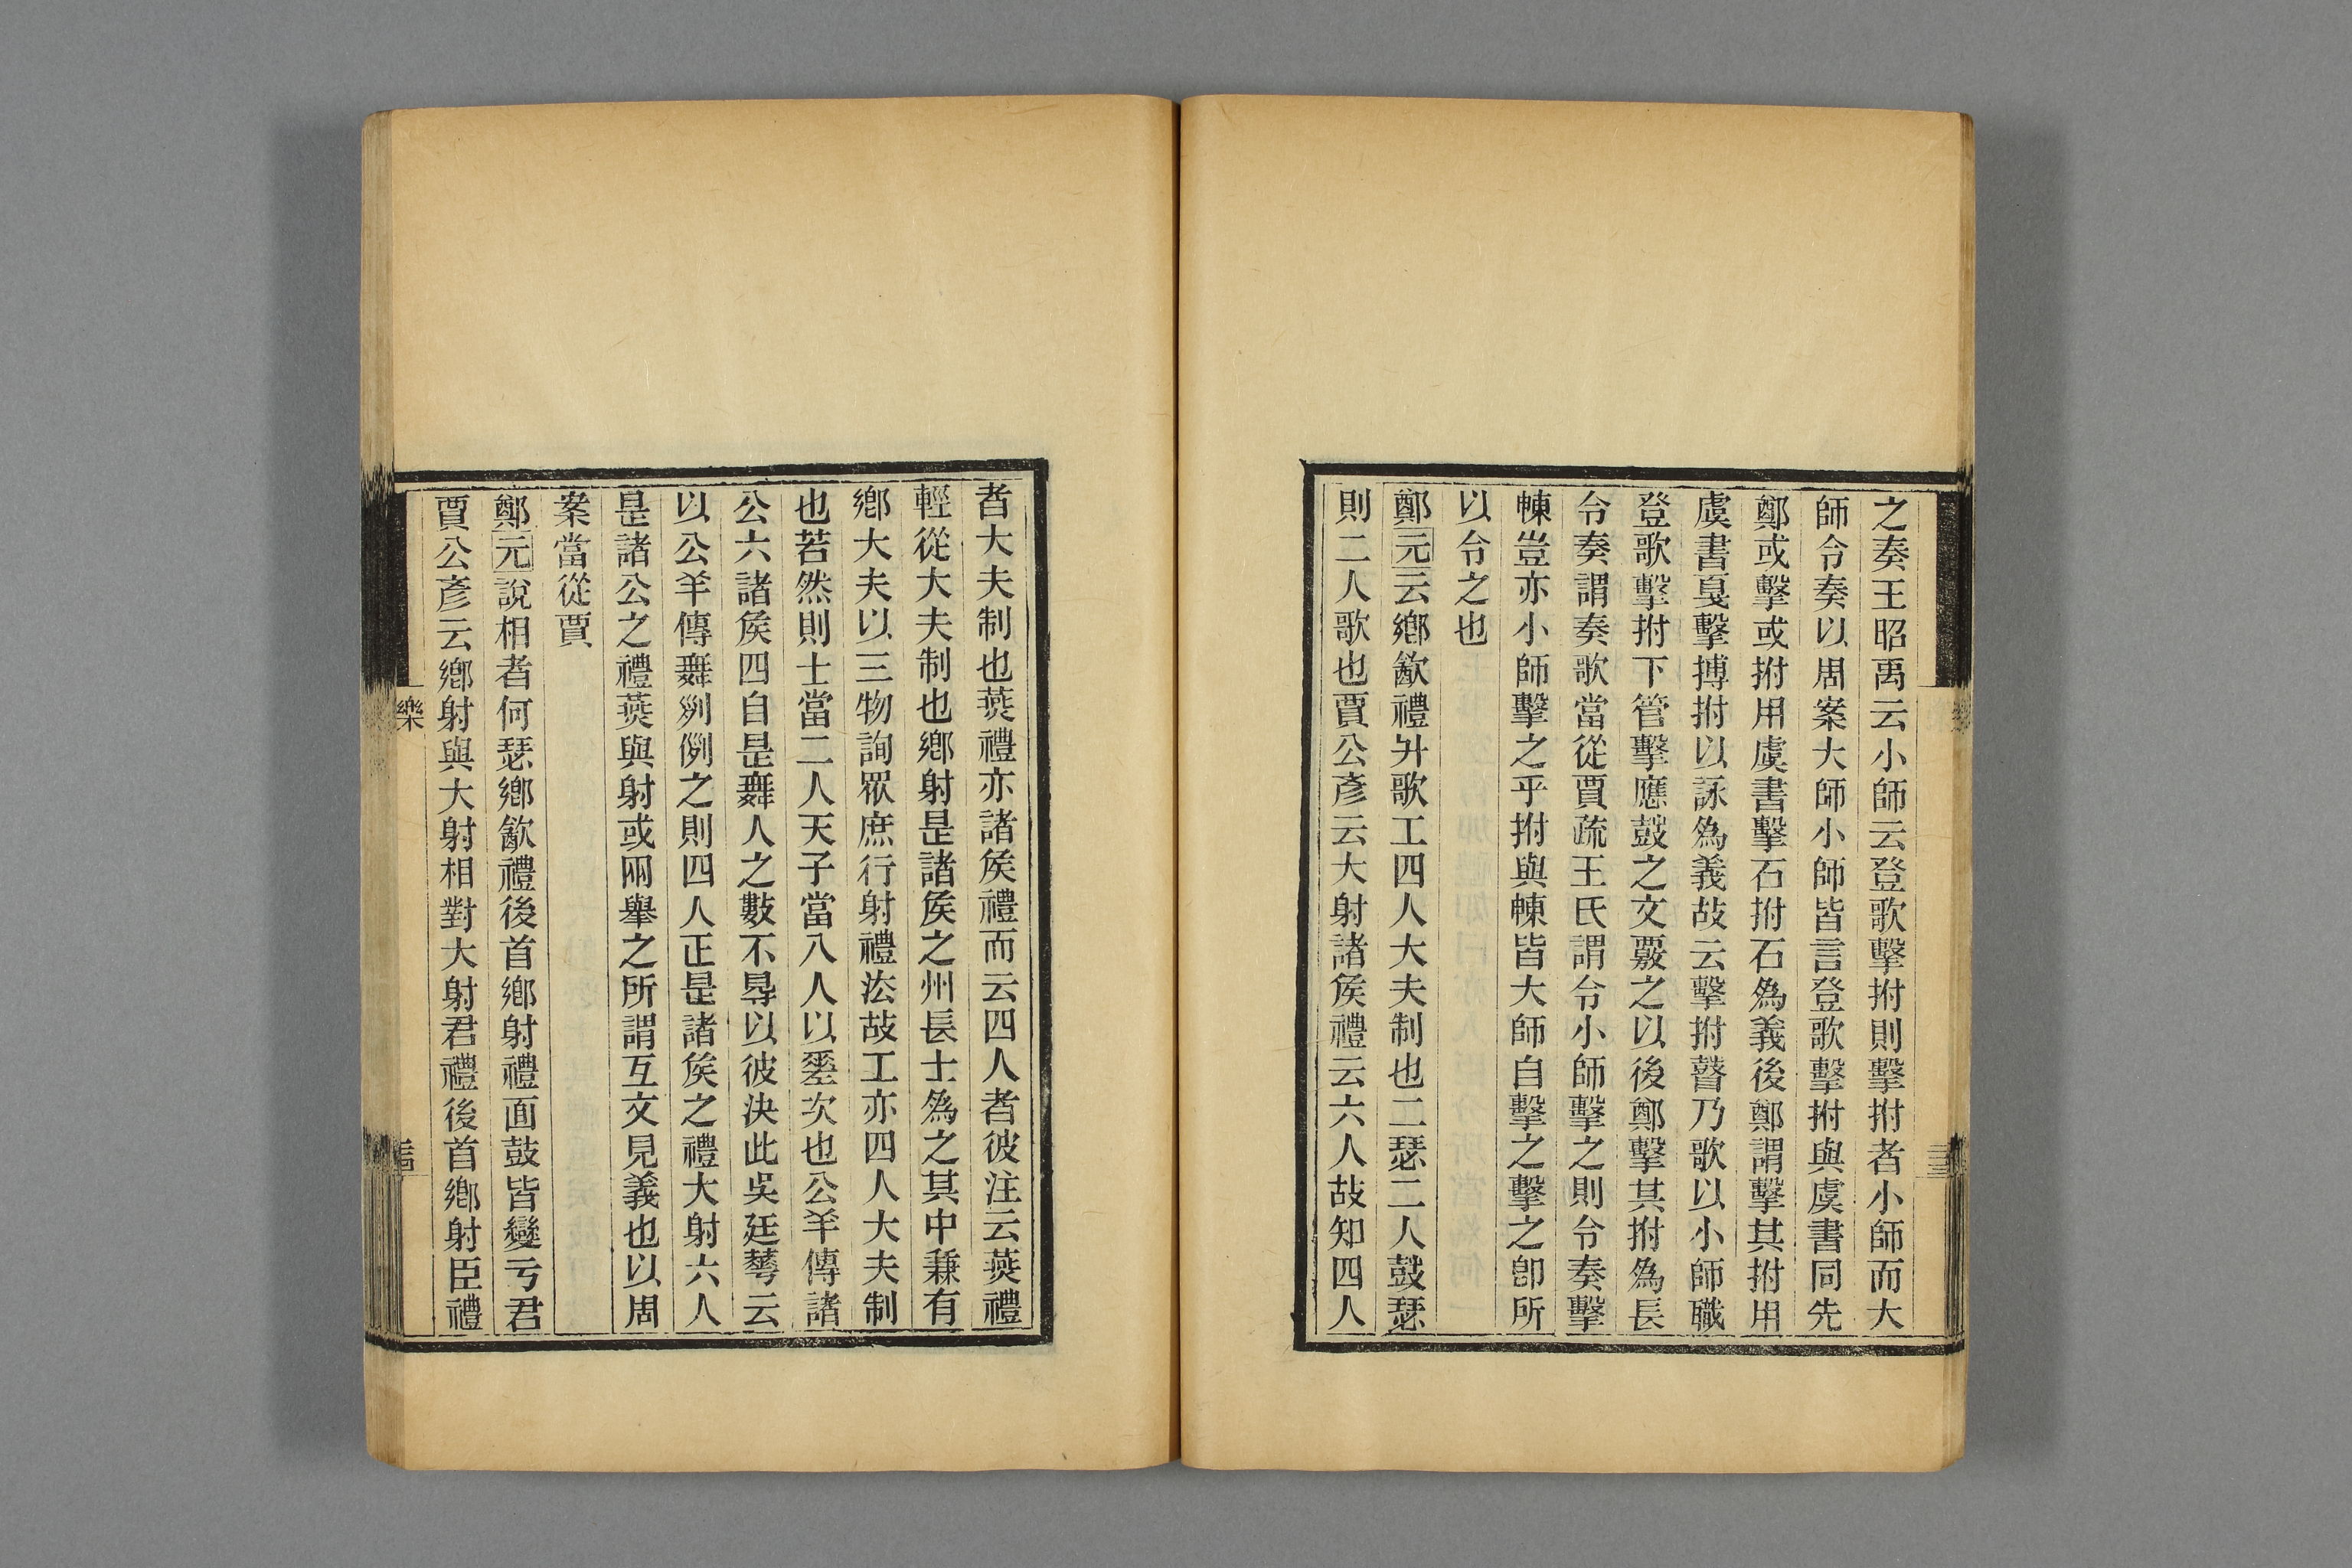 之奏王昭禹云小師云登歌擊拊則擊拊者小師而大
師令奏以周案大師小師皆言登歌擊拊與虞書同先
鄭或擊或拊用虞書擊石拊石爲義後鄭謂擊其拊用
虞書戛擊搏拊以詠爲義故云擊拊瞽乃歌以小師職
登歌擊拊下管擊應鼓之文覈之以後鄭擊其拊爲長
令奏謂奏歌當從賈疏王氏謂令小師擊之則令奏擊
㯥豈亦小師擊之乎拊與㯥皆大師自擊之擊之卽所
以令之也
鄭元云鄉飮禮升歌工四人大夫制也二瑟二人鼓瑟
則二人歌也賈公彥云大射諸矦禮云六人故知四人
者大夫制也燕禮亦諸矦禮而云四人者彼注云燕禮
輕從大夫制也鄉射是諸矦之州長士爲之其中兼有
鄉大夫以三物詢眾庶行射禮法故工亦四人大夫制
也若然則士當二人天子當八人以差次也公羊傳諸
公六諸矦四自是舞人之數不得以彼決此吳廷華云
以公羊傳舞列例之則四人正是諸矦之禮大射六人
是諸公之禮燕與射或兩舉之所謂互文見義也以周
案當從賈
鄭元說相者何瑟鄉飮禮後首鄉射禮面鼓皆變于君
賈公彥云鄉射與大射相對大射君禮後首鄉射臣禮
樂